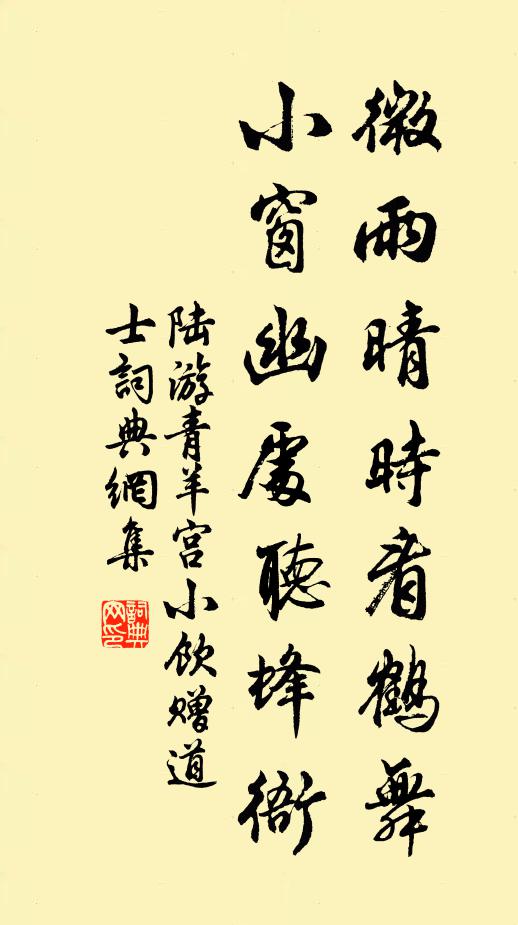 微雨晴時看鶴舞
小窗幽處聽蜂衙
陆游青羊宫小飲赠道
士詞典網集
詞典
网印